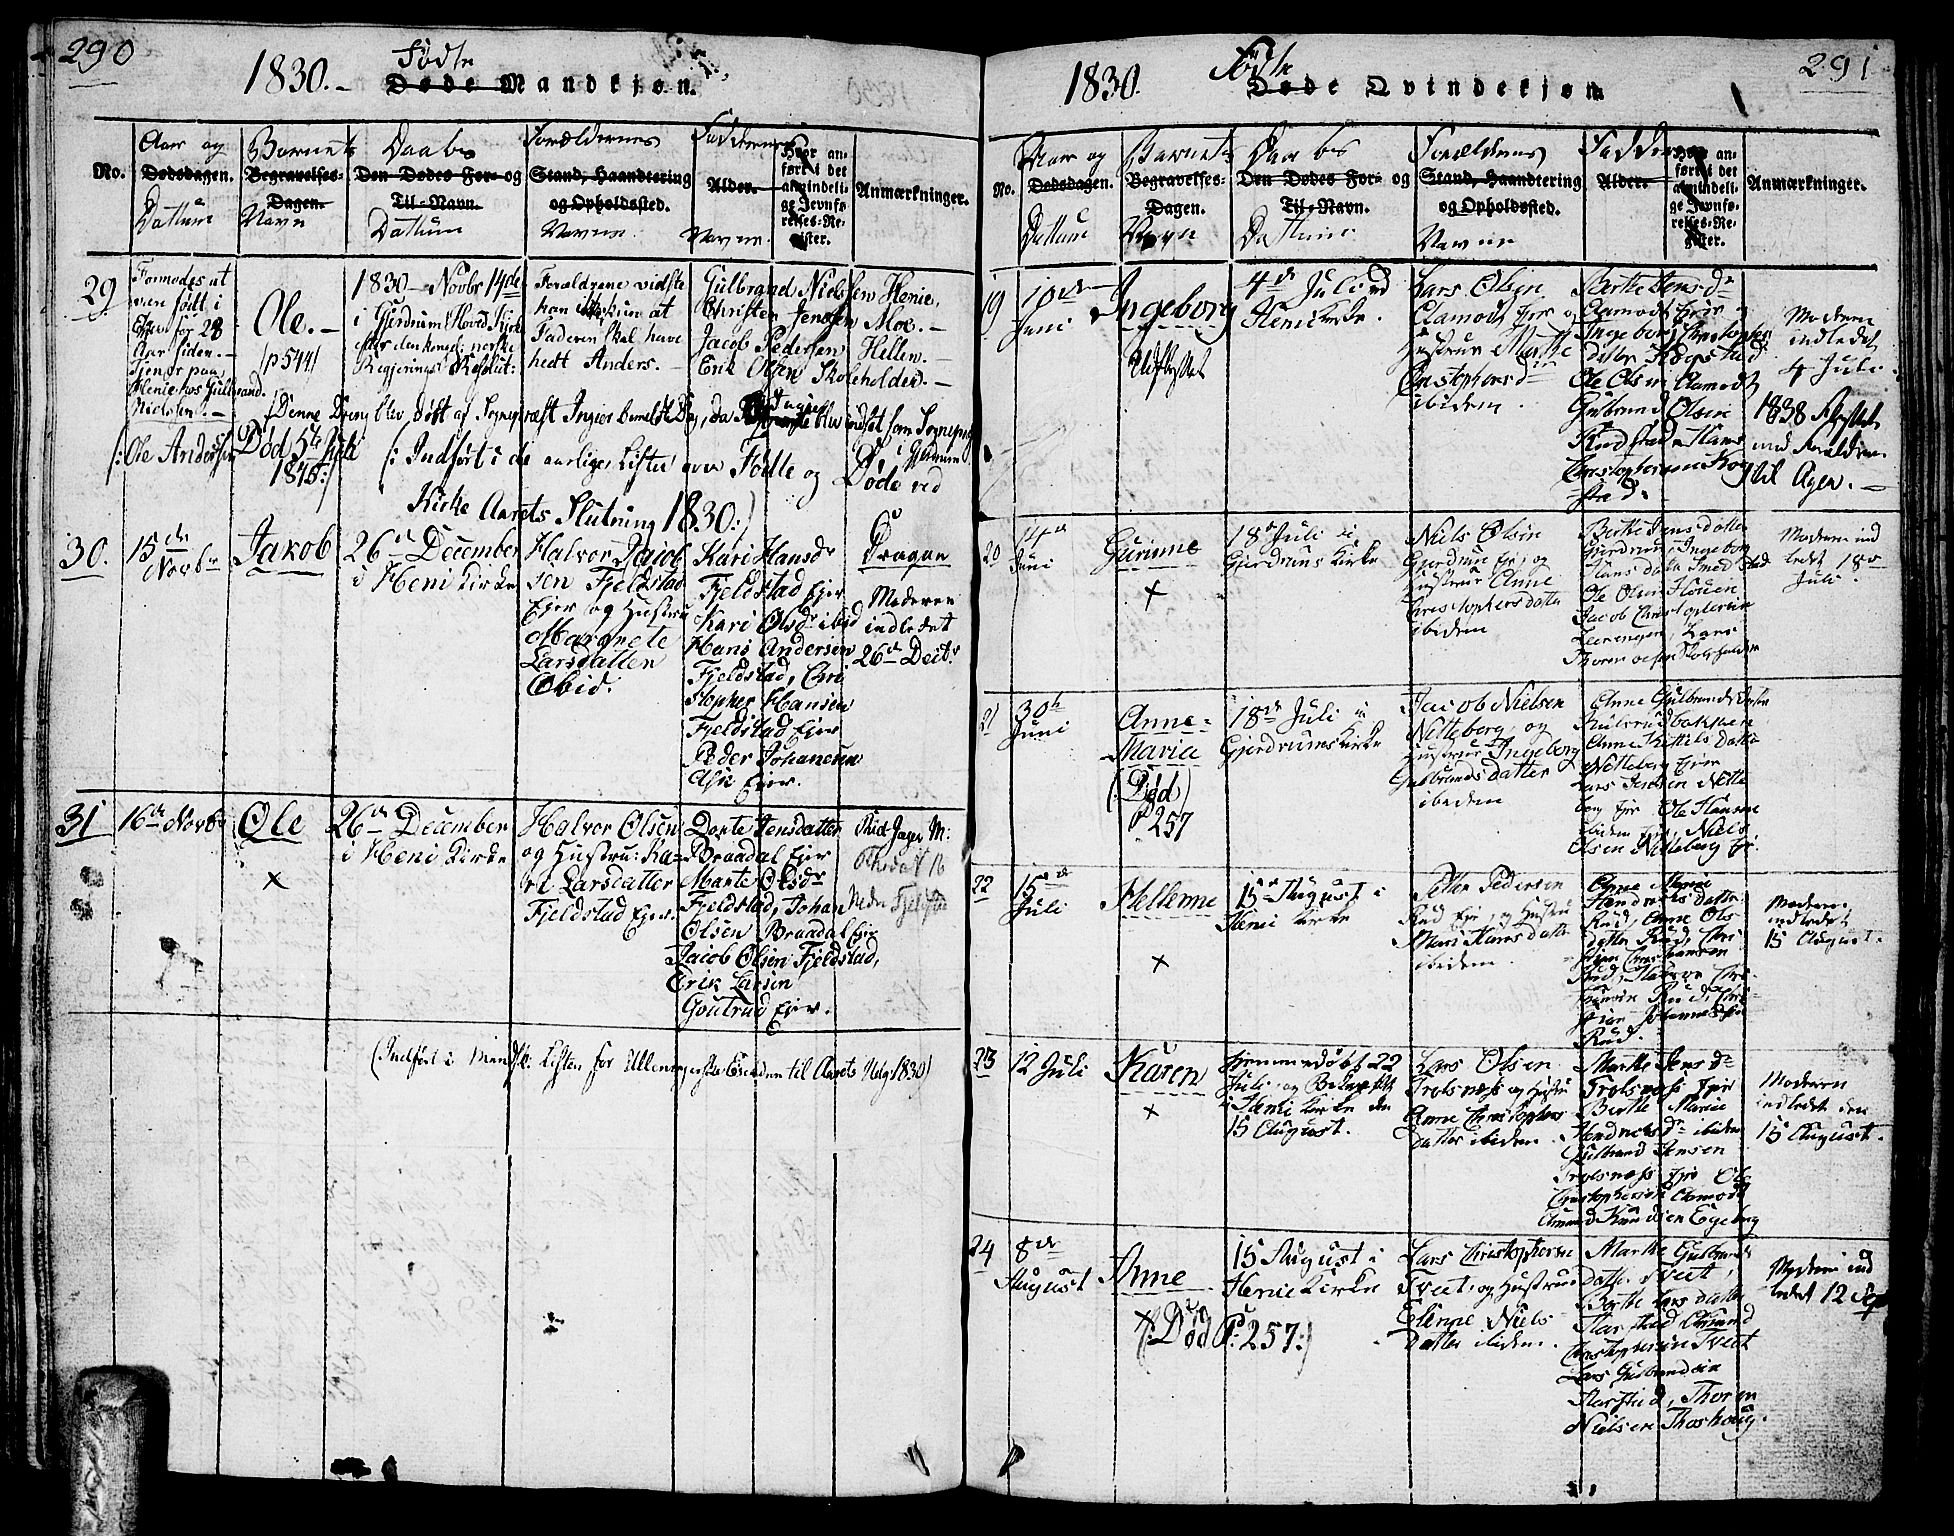 290
1830.- Fødte
Døde Mandkjøn.
No.
Aar og
Dødsdagen.
Dattum
Barnets
Begravelses-
Dagen.
Navn
Daabs
Den Dødes For- og
Til-Navn.
Dattum
Forældrenes
Stand, Haandtering
og Opholdssted.
Navne.
Faddernes
Alder.
Navne.
Hvor an-
ført i det
almindeli-
ge Jevnfø-
relses-Re-
gister.
Anmærkninger.
29
Formodes at
være født i
for 28
Aar siden.-
Tjener paa
Henie hos Gulbrand
Nielsen.-
(: Ole Andersen
Ole.-
/p 544/
Død 5te Juli
1846:/
1830- Novbr 14de
i Gjerdrum Hoved Kirke
efter den kongel: norske
Regjerings Resolut:
Forældrene vidste
han ikke kun at
Faderen skal have
hedt Anders.-
Gulbrand Nielsen Henie,
Christen Jensen Moe.-
Jacob Pedersen Hellen.-
Erik Olsen Skoleholder.-
/Denne Dreng blev døbt af Sognepræst Ingier bemeldte Dag, da blev indsat som Sognepr:
Gjerdrum
(: Indført i de aarlige Lister over Fødte og Døde ved
Kirke Aarets Slutning 1830:)
30.
15de
Novbr
Jakob
26de December
i Heni Kirke
Halvor Jacob
sen Fjeldstad
Ejer og Hustru
Margrete
Larsdatter
Ibid:
Kari Hansdr
Fjeldstad Ejer
Kari Olsdr ibid
Hans Andersen
Fjeldstad, Chri
stopher Hansen
Fjeldstad Ejer
Peder Johanesen
Ask Ejer.
Dragon
Moderen
indledet
26de Decbr.
31
16de Novbr
Ole
×
26de December
i Heni Kirke
Halvor Olsen
og Hustru: Ka-
ri Larsdatter
Fjeldstad Ejer.
Dorte Jensdatter
Braadal Ejer
Marte Olsdr
Fjeldstad, Johan
Olsen Braadal Ejer
Jacob Olsen Fjeldstad,
Erik Larsen
Goutrud Ejer.
Rid. Jager M:
Fjelstad
(Indført i Minist: Listen for Ullensager til Aarets Udg: 1830)
291
1830. Fødte
Døde Qvindekjøn
No.
Aar og
Dødsdagen.
Dattum
Barnets
Begravelses-
Dagen.
Navn
Daabs
Den Dødes For- og
Til-Navn.
Dattum
Forældrenes
Stand, Haandtering
og Opholdssted.
Navne
Faddernes
Alder.
Hvor an-
ført i det
almindeli-
ge Jevnfø-
relses-Re-
gister.
Anmærkninger.
19
10de
Juni
Ingeborg
Udflyttet
4de Juli ved
Heni Kirke.
Lars Olsen
Clamodt Ejer og
Hustrue Marthe
Christophersdr
ibidem.
Berthe Jensdr
Clamodt Ejer
Ingeborg Christophers
datter Kogstad
Ole Olsen Clamodt
Gulbrand Olsen
Hans
Christophersen Kog
stad.
Moderen
indledet
4 Juli.
1838 flyttet
med Forældrene
til Ager.-
20
14de
Juni
Gurinne
×
18de Juli i
Gjerdrums Kirke
Niels Olsen
Gjerdrum Ejer, og
Hustrue Anne
Christophersdatter
ibidem
Berthe Jensdatter
Gjerdrum, Ingeborg
Hansdatter
Ole Olsen
Jacob Christophersen
Lars
Thoresen Skoleholder
Moderen ind
ledet 18de
Juli.
21
30te
Juni
Anne
Maria
(Død)
P 257
18de Juli i
Gjerdrums Kirke
Jacob Nielsen
Nitteberg, og
Hustrue Ingeborg
Gulbrandsdatter
ibidem
Anne Gulbrandsdatter
Anne Kittilsdatter
Nitteberg Ejer
Lars Jensen Nitte
berg Ejer Ole Hansen
ibidem Ejer, Niels
Olsen Nitteberg Ejer.
22
15de
Juli
Hellenne
×
15de August i
Heni Kirke
Petter Pedersen
Rud Ejer, og Hustru
Mari Hansdatter
ibidem.
Anne Marie
Hendrichsdatter
Rud, Anne Ols
datter Rud, Chri
Rud, Halvor Chri
Rud, Chri
stian Johannessen
Rud.
Moderen
indledet
15 August.
23
12 Juli
Karen
×
Hjemmedøbt 22
Juli, og Bekræftet
i Heni Kirke den
15 August.
Lars Olsen
Trolsnæss og Hustru
Anne Christophers
datter ibidem.
Marthe Jensdr
Trolsnæss Ejer
Berthe Marie
Hendrichsdr ibidem
Gulbrand Jensen
Trolsnæss Ejer Ole
Christophersen Clamodt
Amund Knudsen Egeberg
Moderen
indledet den
15 August.
24
8de
August
Anne
×
(: Død P: 257:)
15 August i
Heni Kirke
Lars Christophersen
Tveit, og Hustrue
Elenne Niels
datter ibidem.
Marthe Gulbrands
datter Tveit,
Berthe Larsdatter
Harstad Amund
Christophersen Tveit
Lars Gulbrandsen
Harstad, Thor en
Nielsen Thoshoug.
Moderen ind
ledet 12 Sept